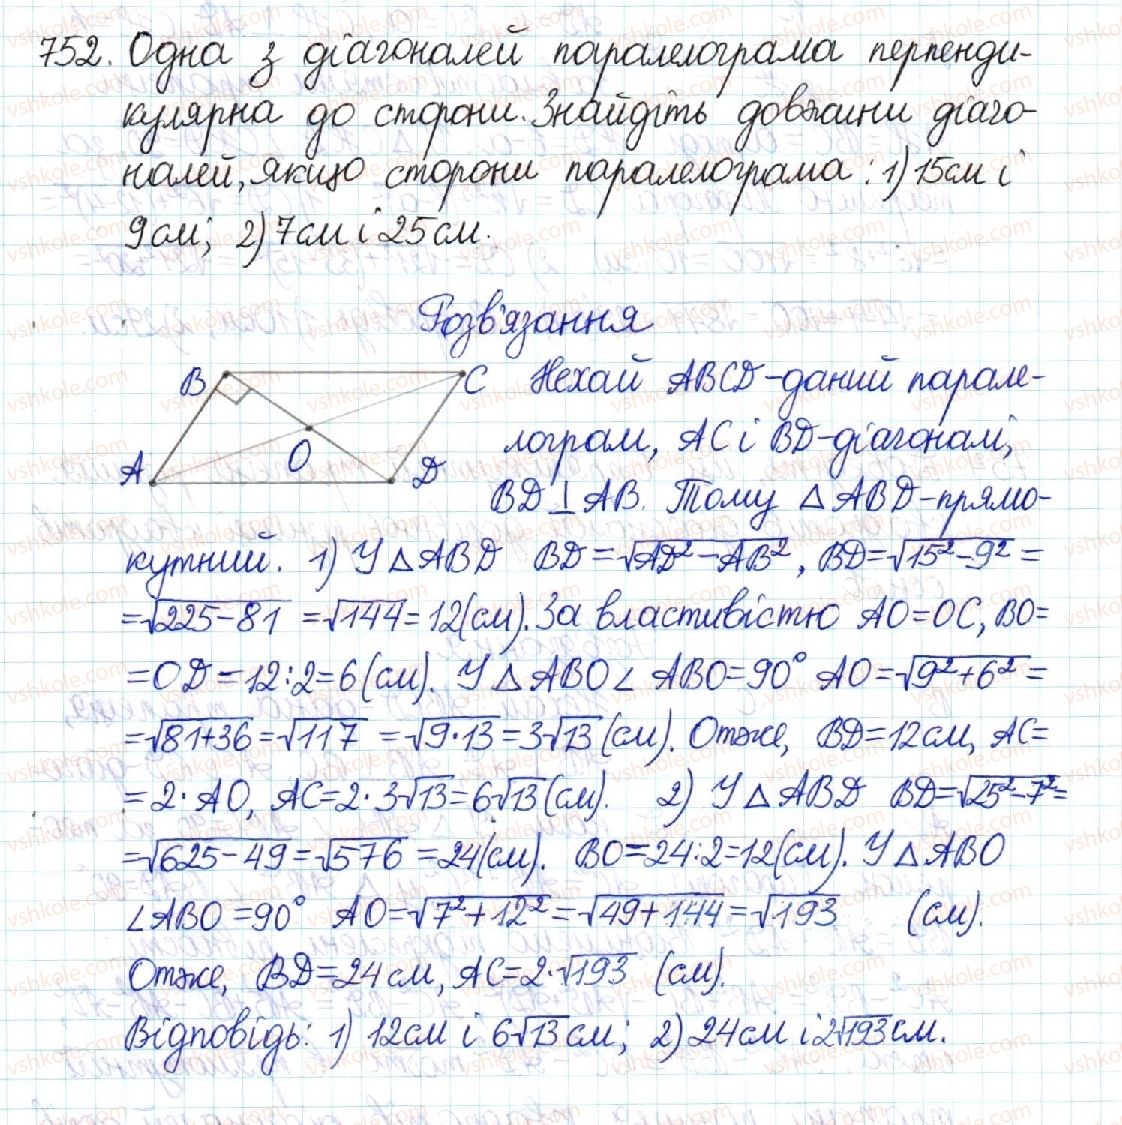 752. Одна з діагоналей паралелограма перпенди-
кулярна до сторони. Знайдіть довжини діаго-
налей, якщо сторони паралелограма: 1) 15см і
9см; 2) 7см і 25см.
Розв'язання
B C Нехай ABCD-даний парале-
лограм, AC і BD-діагоналі,
A O D
BD⊥AB. Тому △ABD-прямо-
кутний. 1) У △ABD BD=√AD²-AB², BD=√15²-9² =
=√225-81 =√144=12(см). За властивістю AO=OC, BO=
=OD=12:2=6(см). У △ABO∠ABO=90° AO=√9²+6² =
=√81+36=√117 =√9·13=3√13(см). Отже, BD=12см, AC=
=2·AO, AC=2·3√13=6√13(см). 2) У △ABD BD=√25²-7²=
=√625-49=√576=24(см). BO=24:2=12(см). У △ABO
∠ABO=90° AO=√7²+12²=√49+144=√193 (см).
Отже, BD=24см, AC=2·√193 (см).
Відповідь: 1) 12см і 6√13см; 2) 24см і 2√193см.